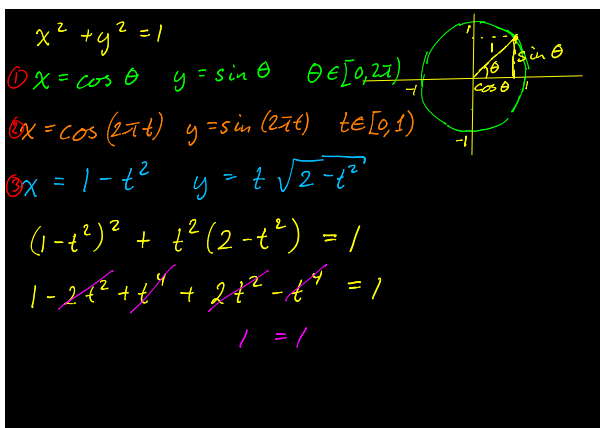 x² + y² = 1
① x = cos θ y = sin θ θ ∈ [0, 2π)
② x = cos (2πt) y = sin (2πt) t ∈ [0, 1)
③ x = 1 - t² y = t √(2 - t²)
(1 - t²)² + t² (2 - t²) = 1
1 - 2t² + t⁴ + 2t² - t⁴ = 1
1 = 1
1
1
sin θ
θ
cos θ
-1
1
-1